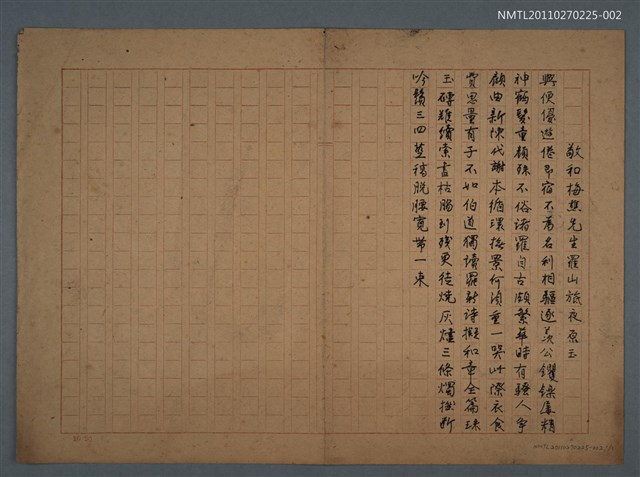 NMTL20110270225-002
敬和梅樵先生羅山旅夜原玉
興便優遊倦即宿不為名利相驅逐羨公钁鑠慶精
神鶴髮童顏殊不俗諸羅自古頗繁華時有騷人爭
顧曲新陳代謝本循環撫景何須重一哭此際衣食
費思量有子不如伯道獨讀罷新詩擬和章全篇珠
玉磚難續索盡枯腸到殘更徒燒灰燼三條燭撚斷
吟鬚三四莖稍脫腰寬帶一束